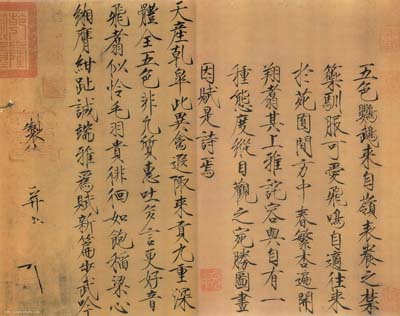 五色鸚鵡來自嶺表養之禁
籞馴服可愛飛鳴自適往來
於苑囿間方中春繁杏遍開
翔翥其上雅詫容與自有一
種態度縱目觀之宛勝圖畫
因賦是詩焉
天產乾皋此異禽遐陬來貢九重深
體全五色非凡質惠吐多言更好音
飛翥似怜毛羽貴徘徊如飽稻粱心
緗膺紺趾誠端雅爲賦新篇步武吟
製